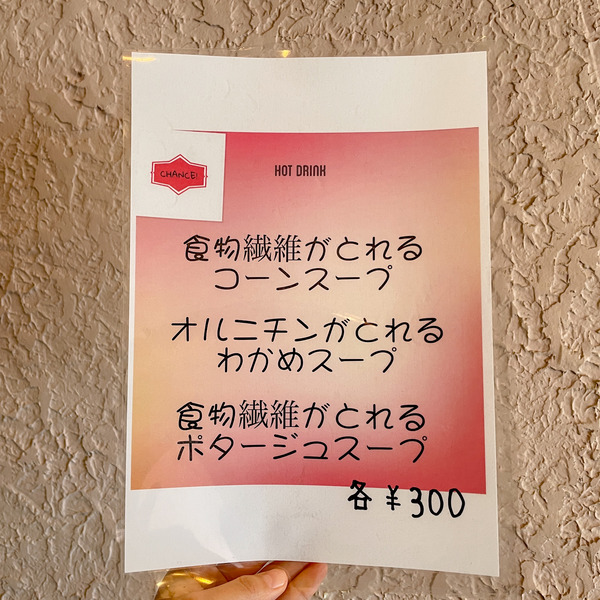 CHANCE!
HOT DRINK
食物繊維がとれる
コーンスープ
オルニチンがとれる
わかめスープ
食物繊維がとれる
ポタージュスープ
各¥300